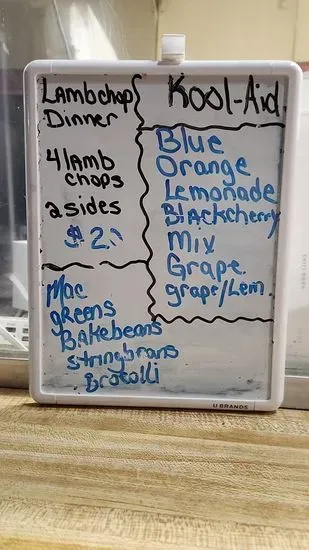 Lambchop
Dinner
4 lamb
chops
2 sides
Kool-Aid
Blue
Orange
Lemonade
Blackcherry
Mix
Grape
grape/Lem.
Mac
gReens
BAkebeans
stringbrans
Brocolli
U BRANDS